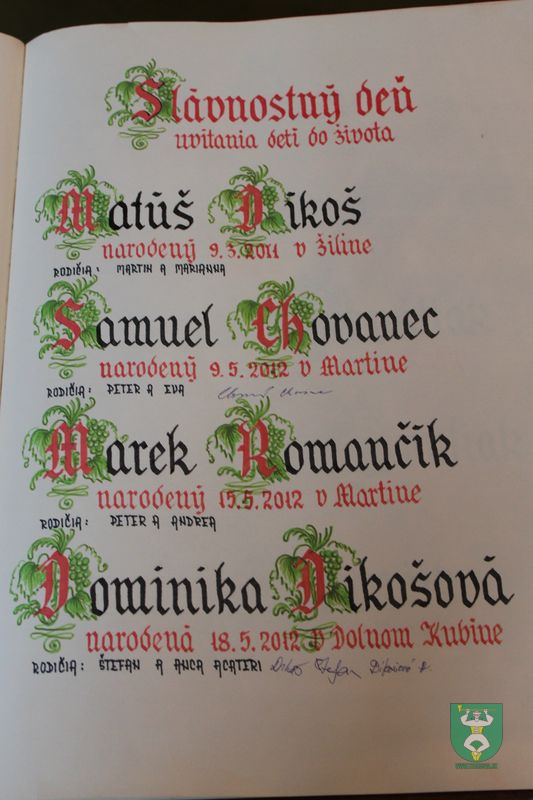 Slávnostný deň
uvítania detí do života
Matúš Dikoš
narodený 9.3.2011 v Žiline
RODIČIA: MARTIN A MARIANNA
Samuel Chovanec
narodený 9.5.2012 v Martine
RODIČIA: PETER A EVA
Marek Romančík
narodený 15.5.2012 v Martine
RODIČIA: PETER A ANDREA
Dominika Dikošová
narodená 18.5.2012 v Dolnom Kubíne
RODIČIA: ŠTEFAN A ANCA ACATERI Dikoš Štefan Dikošová A.